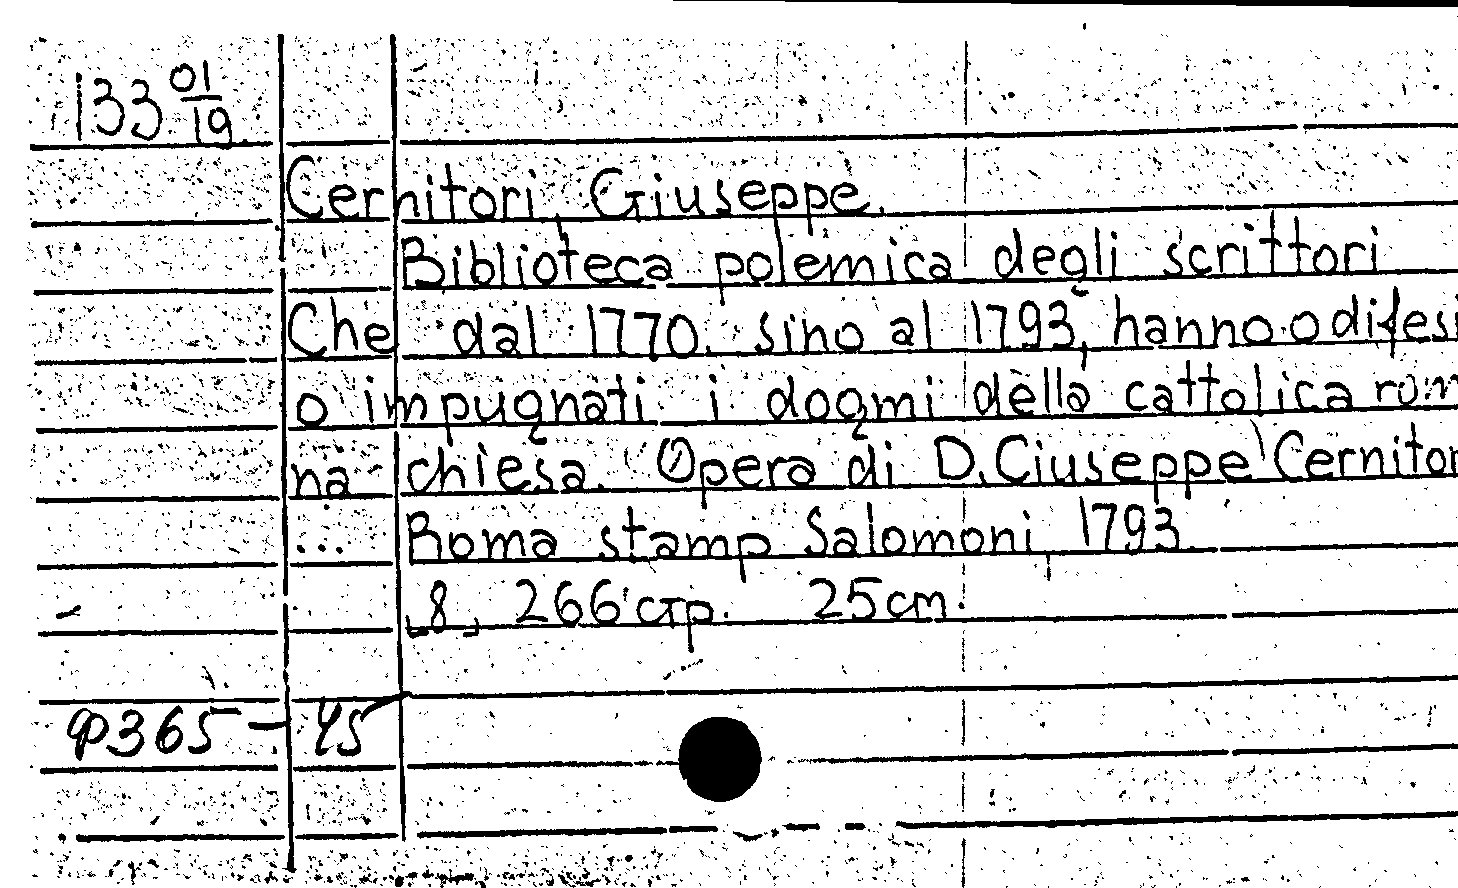 133 01/19
Cernitori, Giuseppe.
Biblioteca polemica degli scrittori
Che dal 1770. sino al 1793, hanno o difesi
o impugnati i dogmi della cattolica rom
na chiesa. Opera di D. Ciuseppe Cernitor
... Roma stamp Salomoni, 1793.
[8], 266 стр. 25cm.
Ф365-45